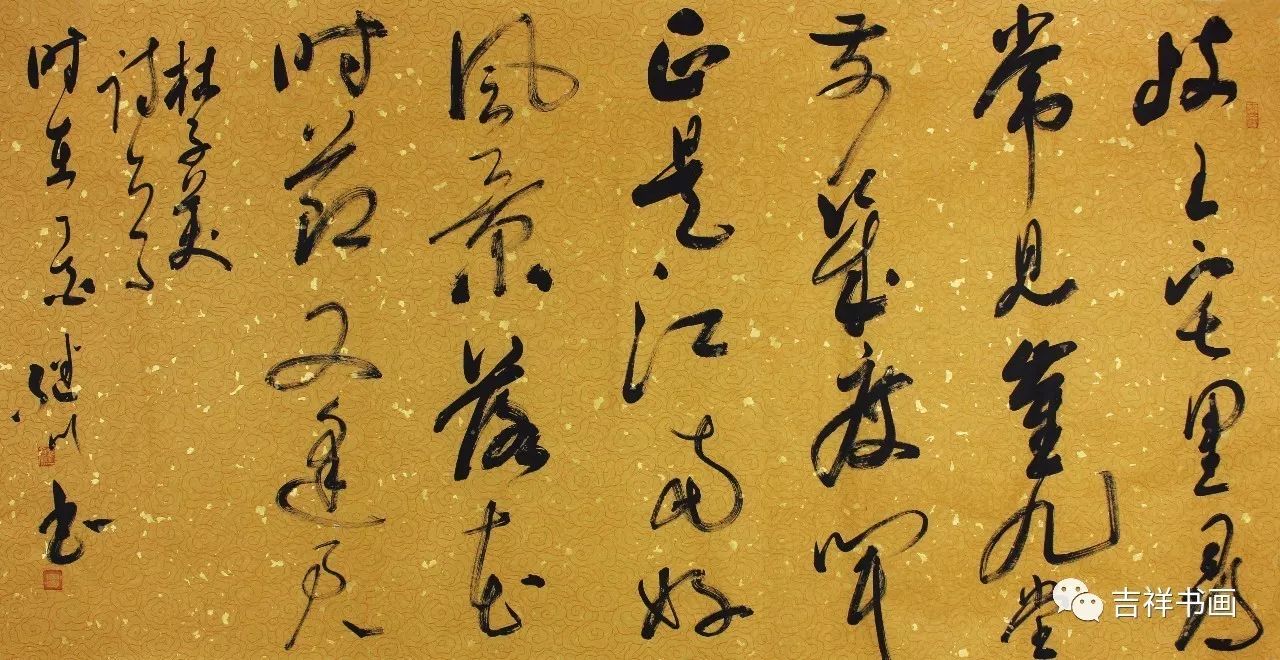 岐王宅里寻
常见崔九堂
前几度闻
正是江南好
风景落花
时节又逢君
杜子美
诗
时在丁酉继川书
吉祥书画